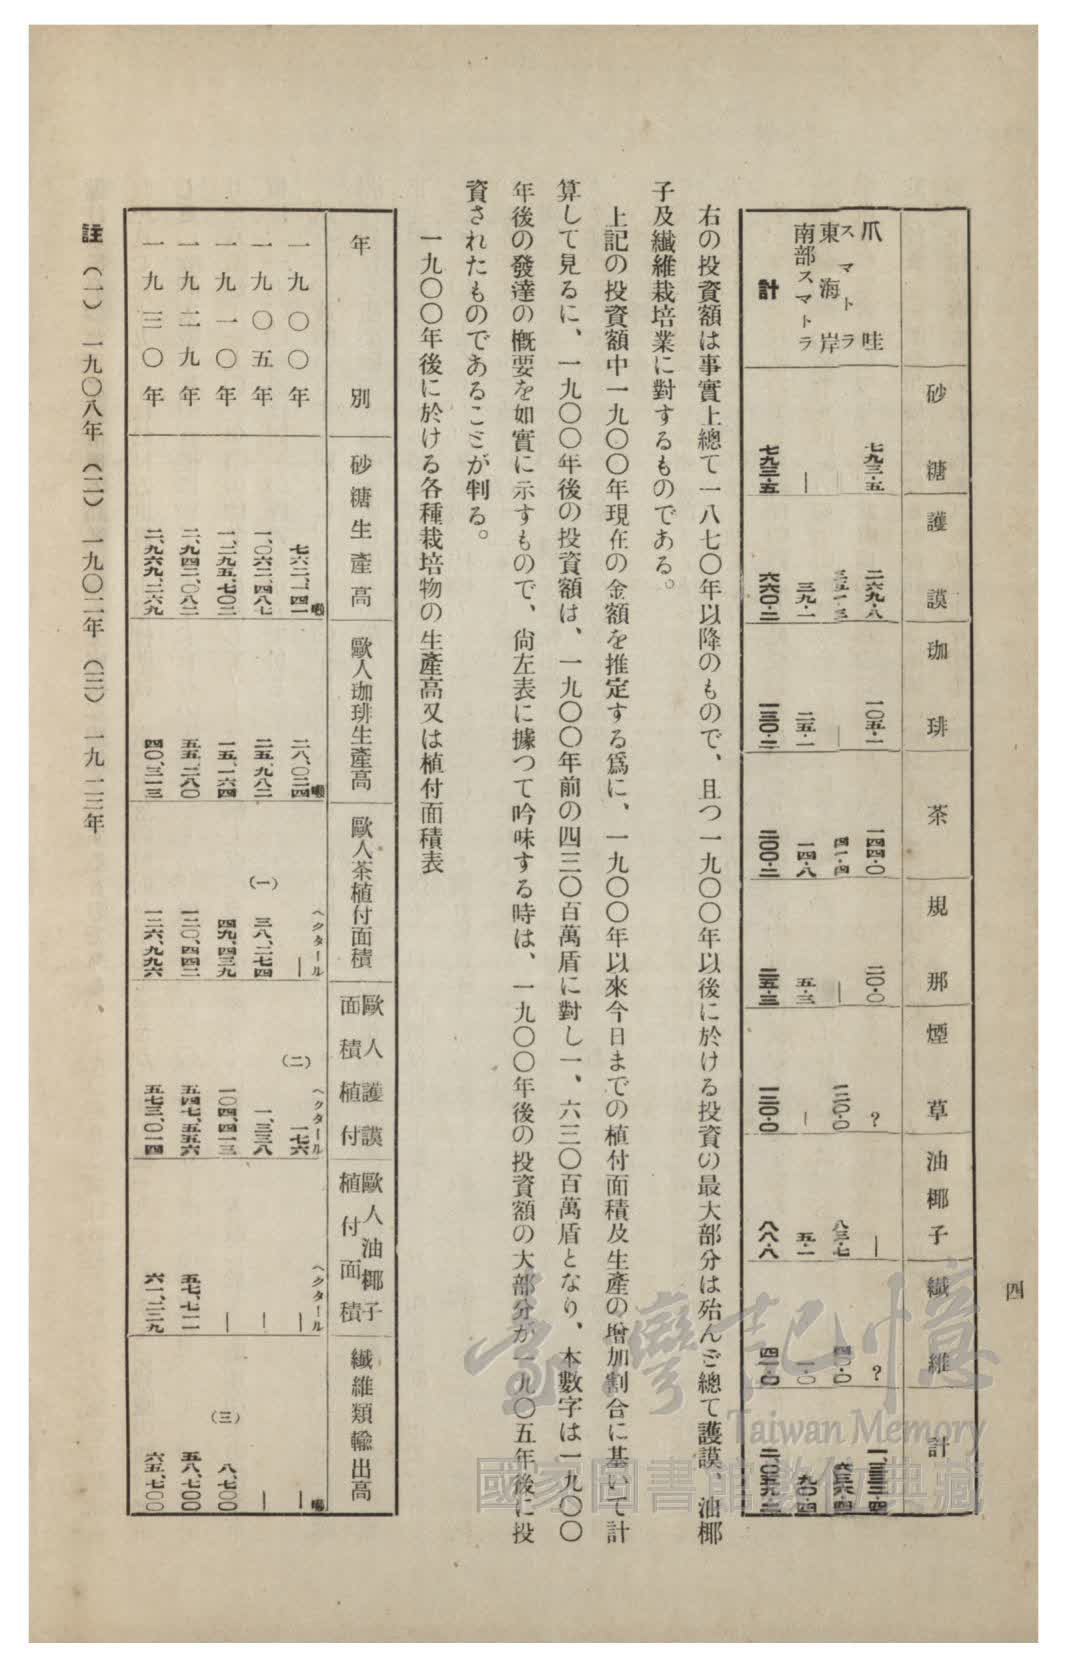 四
砂糖 護謨 珈琲 茶 規那 煙草 油椰子 繊維 計
爪哇 七九三・五 二六九・八 一〇五・一 一四四・〇 二〇・〇 ? — ?
スマトラ東海岸 四一・四 — 八三・七
南部スマトラ — 三九・一 二五・一 一四・八 五・三 — 五・一 一・〇 九〇・四
計 七九三・五 六六〇・二 一三〇・二 二〇〇・二 二五・三 八八・八 四一・〇
右の投資額は事實上總て一八七〇年以降のもので、且つ一九〇〇年以後に於ける投資の最大部分は殆んど總て護謨、油椰
子及繊維栽培業に對するものである。
上記の投資額中一九〇〇年現在の金額を推定する爲に、一九〇〇年以來今日までの植付面積及生產の增加割合に基いて計
算して見るに、一九〇〇年後の投資額は、一九〇〇年前の四三〇百萬盾に對し一、六三〇百萬盾となり、本數字は一九〇〇
年後の發達の槪要を如實に示すもので、尙左表に據つて吟味する時は、一九〇〇年後の投資額の大部分が一九〇五年後に投
資されたものであることが判る。
一九〇〇年後に於ける各種栽培物の生產高又は植付面積表
年別 砂糖生產高 歐人珈琲生產高 歐人茶植付面積 歐人護謨植付面積 歐人油椰子植付面積 繊維類輸出高
一九〇〇年 二八、〇二四 ヘクタール — (二) ヘクタール 一七六 ヘクタール — —
一九〇五年 一、〇六二、四八七 二五、九八二 (一) 三八、二七四 一、三三八 — —
一九一〇年 一、二九五、七〇二 一五、一六四 四九、四三九 一〇四、四一三 — (三) 八、七〇〇
一九二九年 二、九四二、〇八二 五五、二八〇 一二〇、四四二 五四七、五五六 五七、七一一 五八、七〇〇
一九三〇年 二、九六九、二六九 四〇、三一三 一二六、九九六 五七三、〇一四 六一、二二九 六五、七〇〇
註 (一) 一九〇八年 (二) 一九〇二年 (三) 一九一三年
臺灣記憶
Taiwan Memory
國家圖書館數位典藏